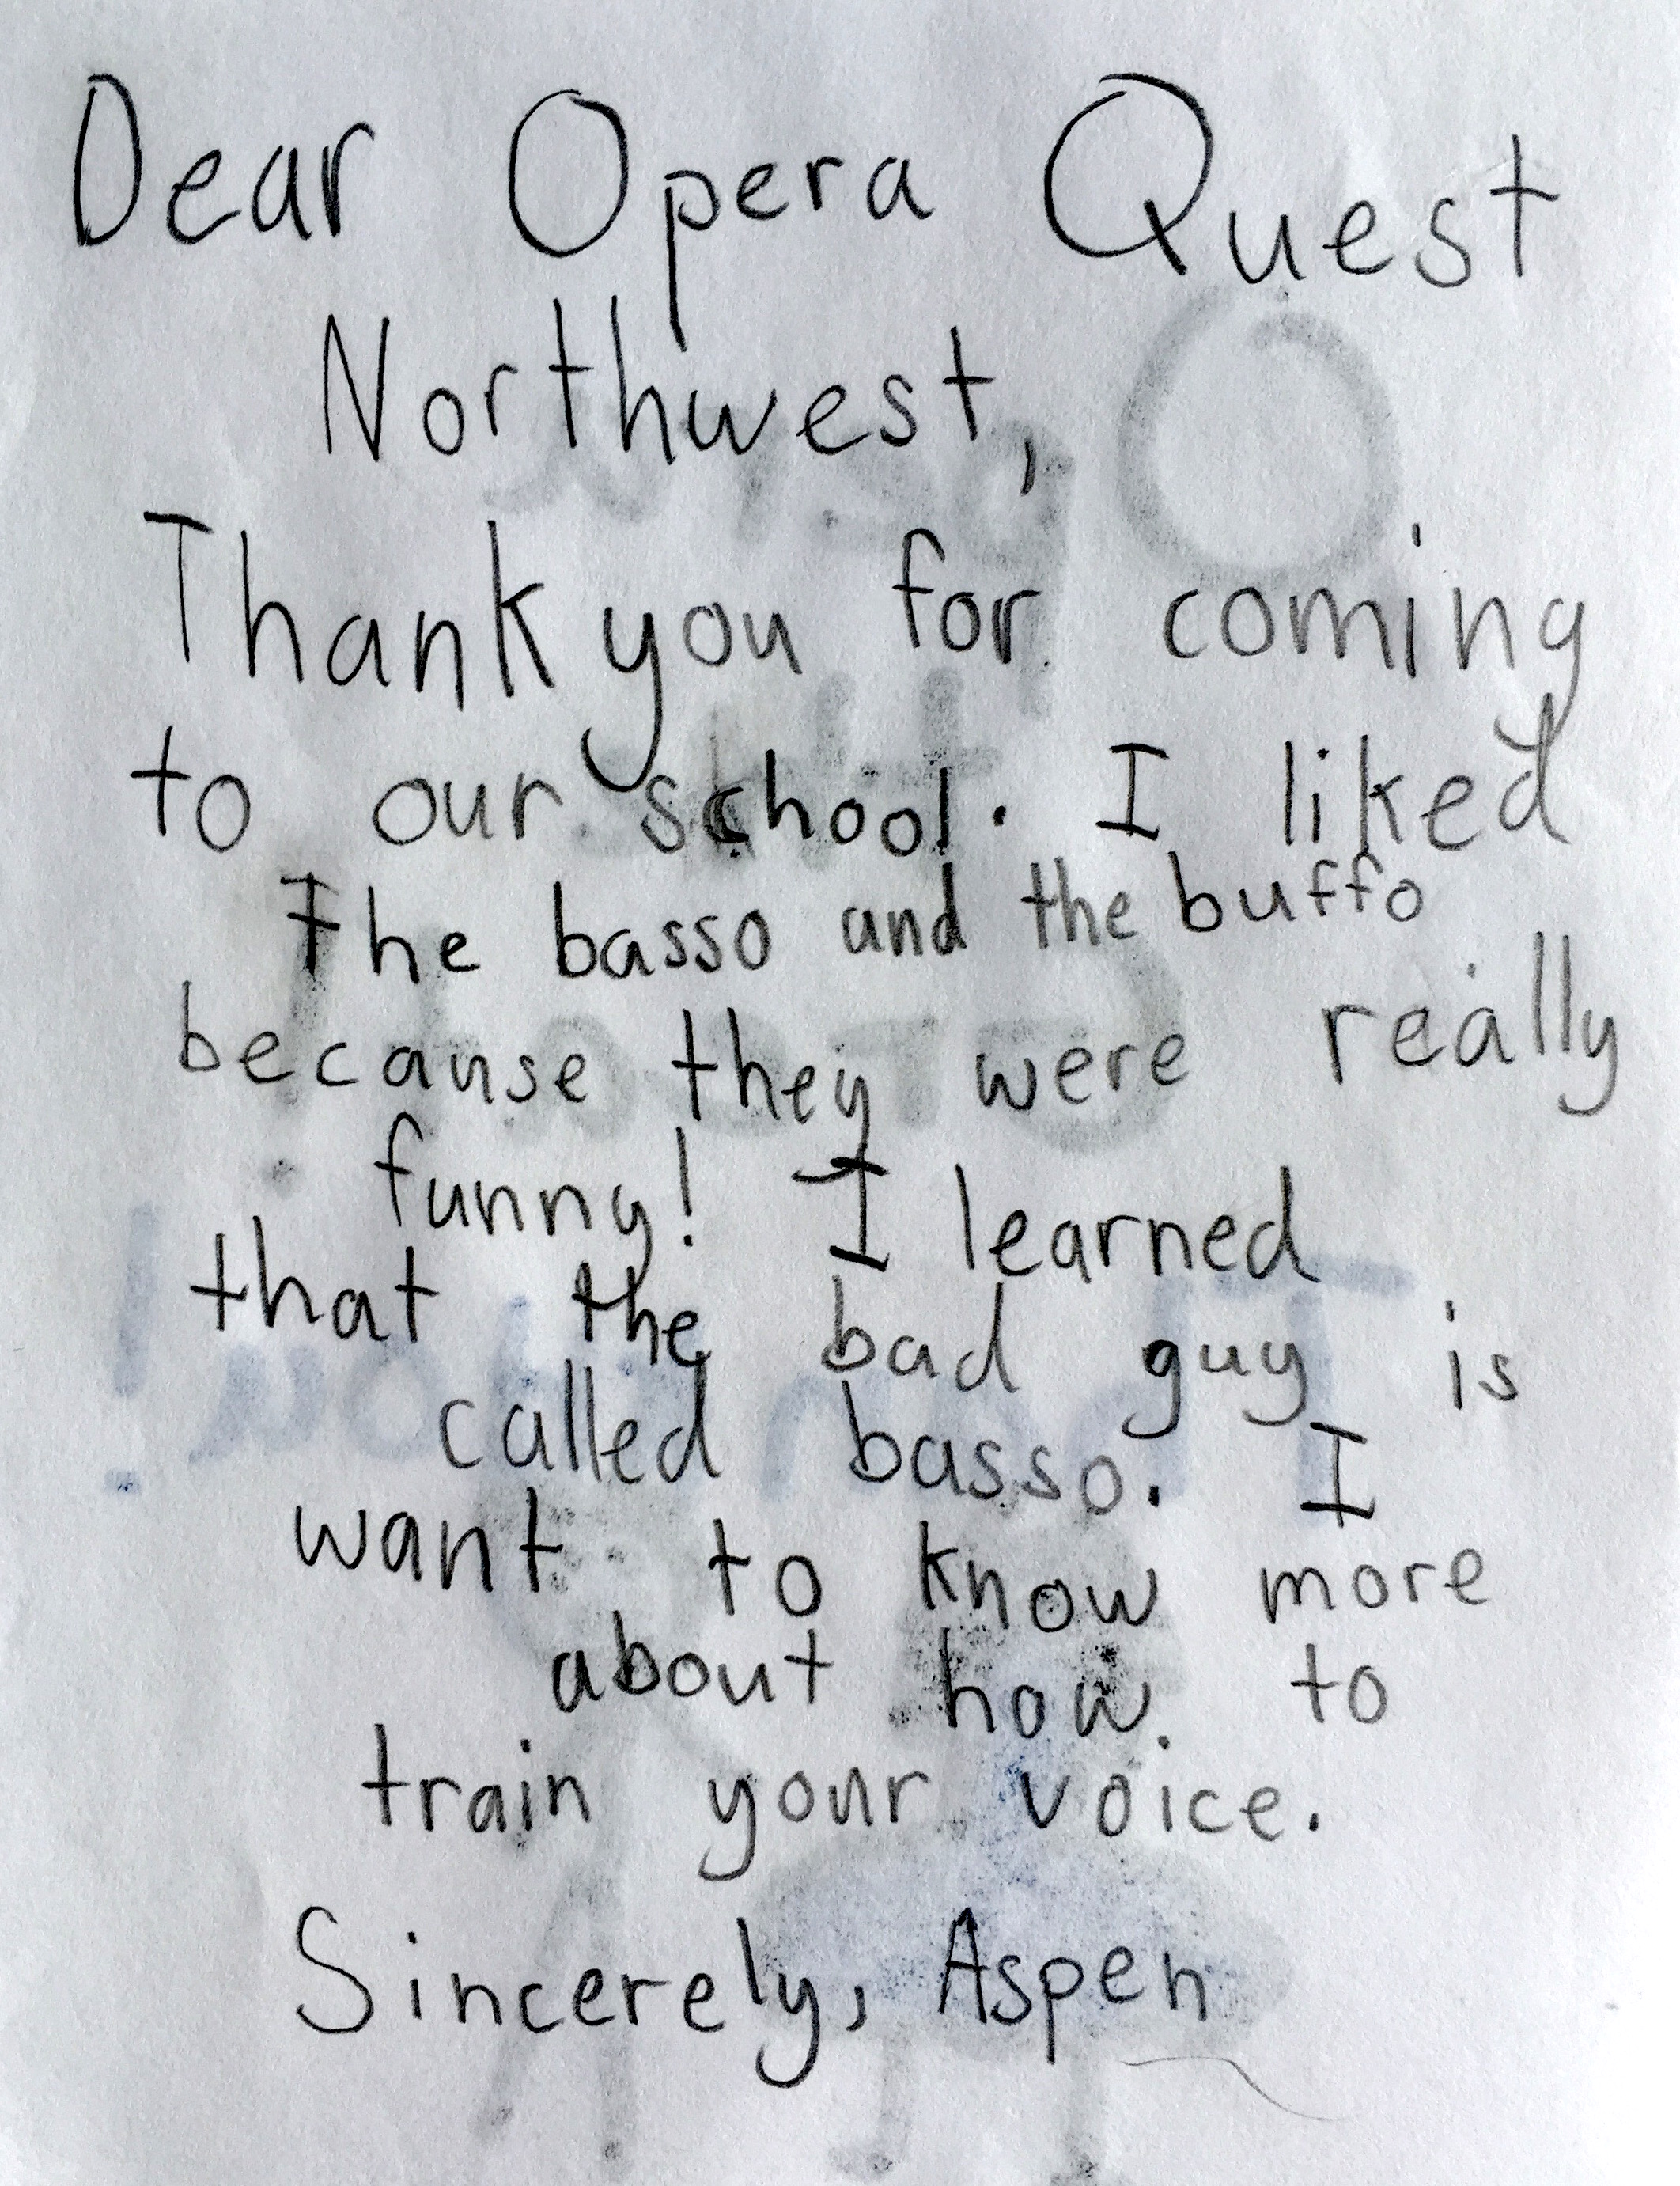 Dear Opera Quest
Northwest,
Thank you for coming
to our school. I liked
The basso and the buffo
because they were really
funny! I learned
that the bad guy is
called basso. I
want to know more
about how to
train your voice.
Sincerely, Aspen